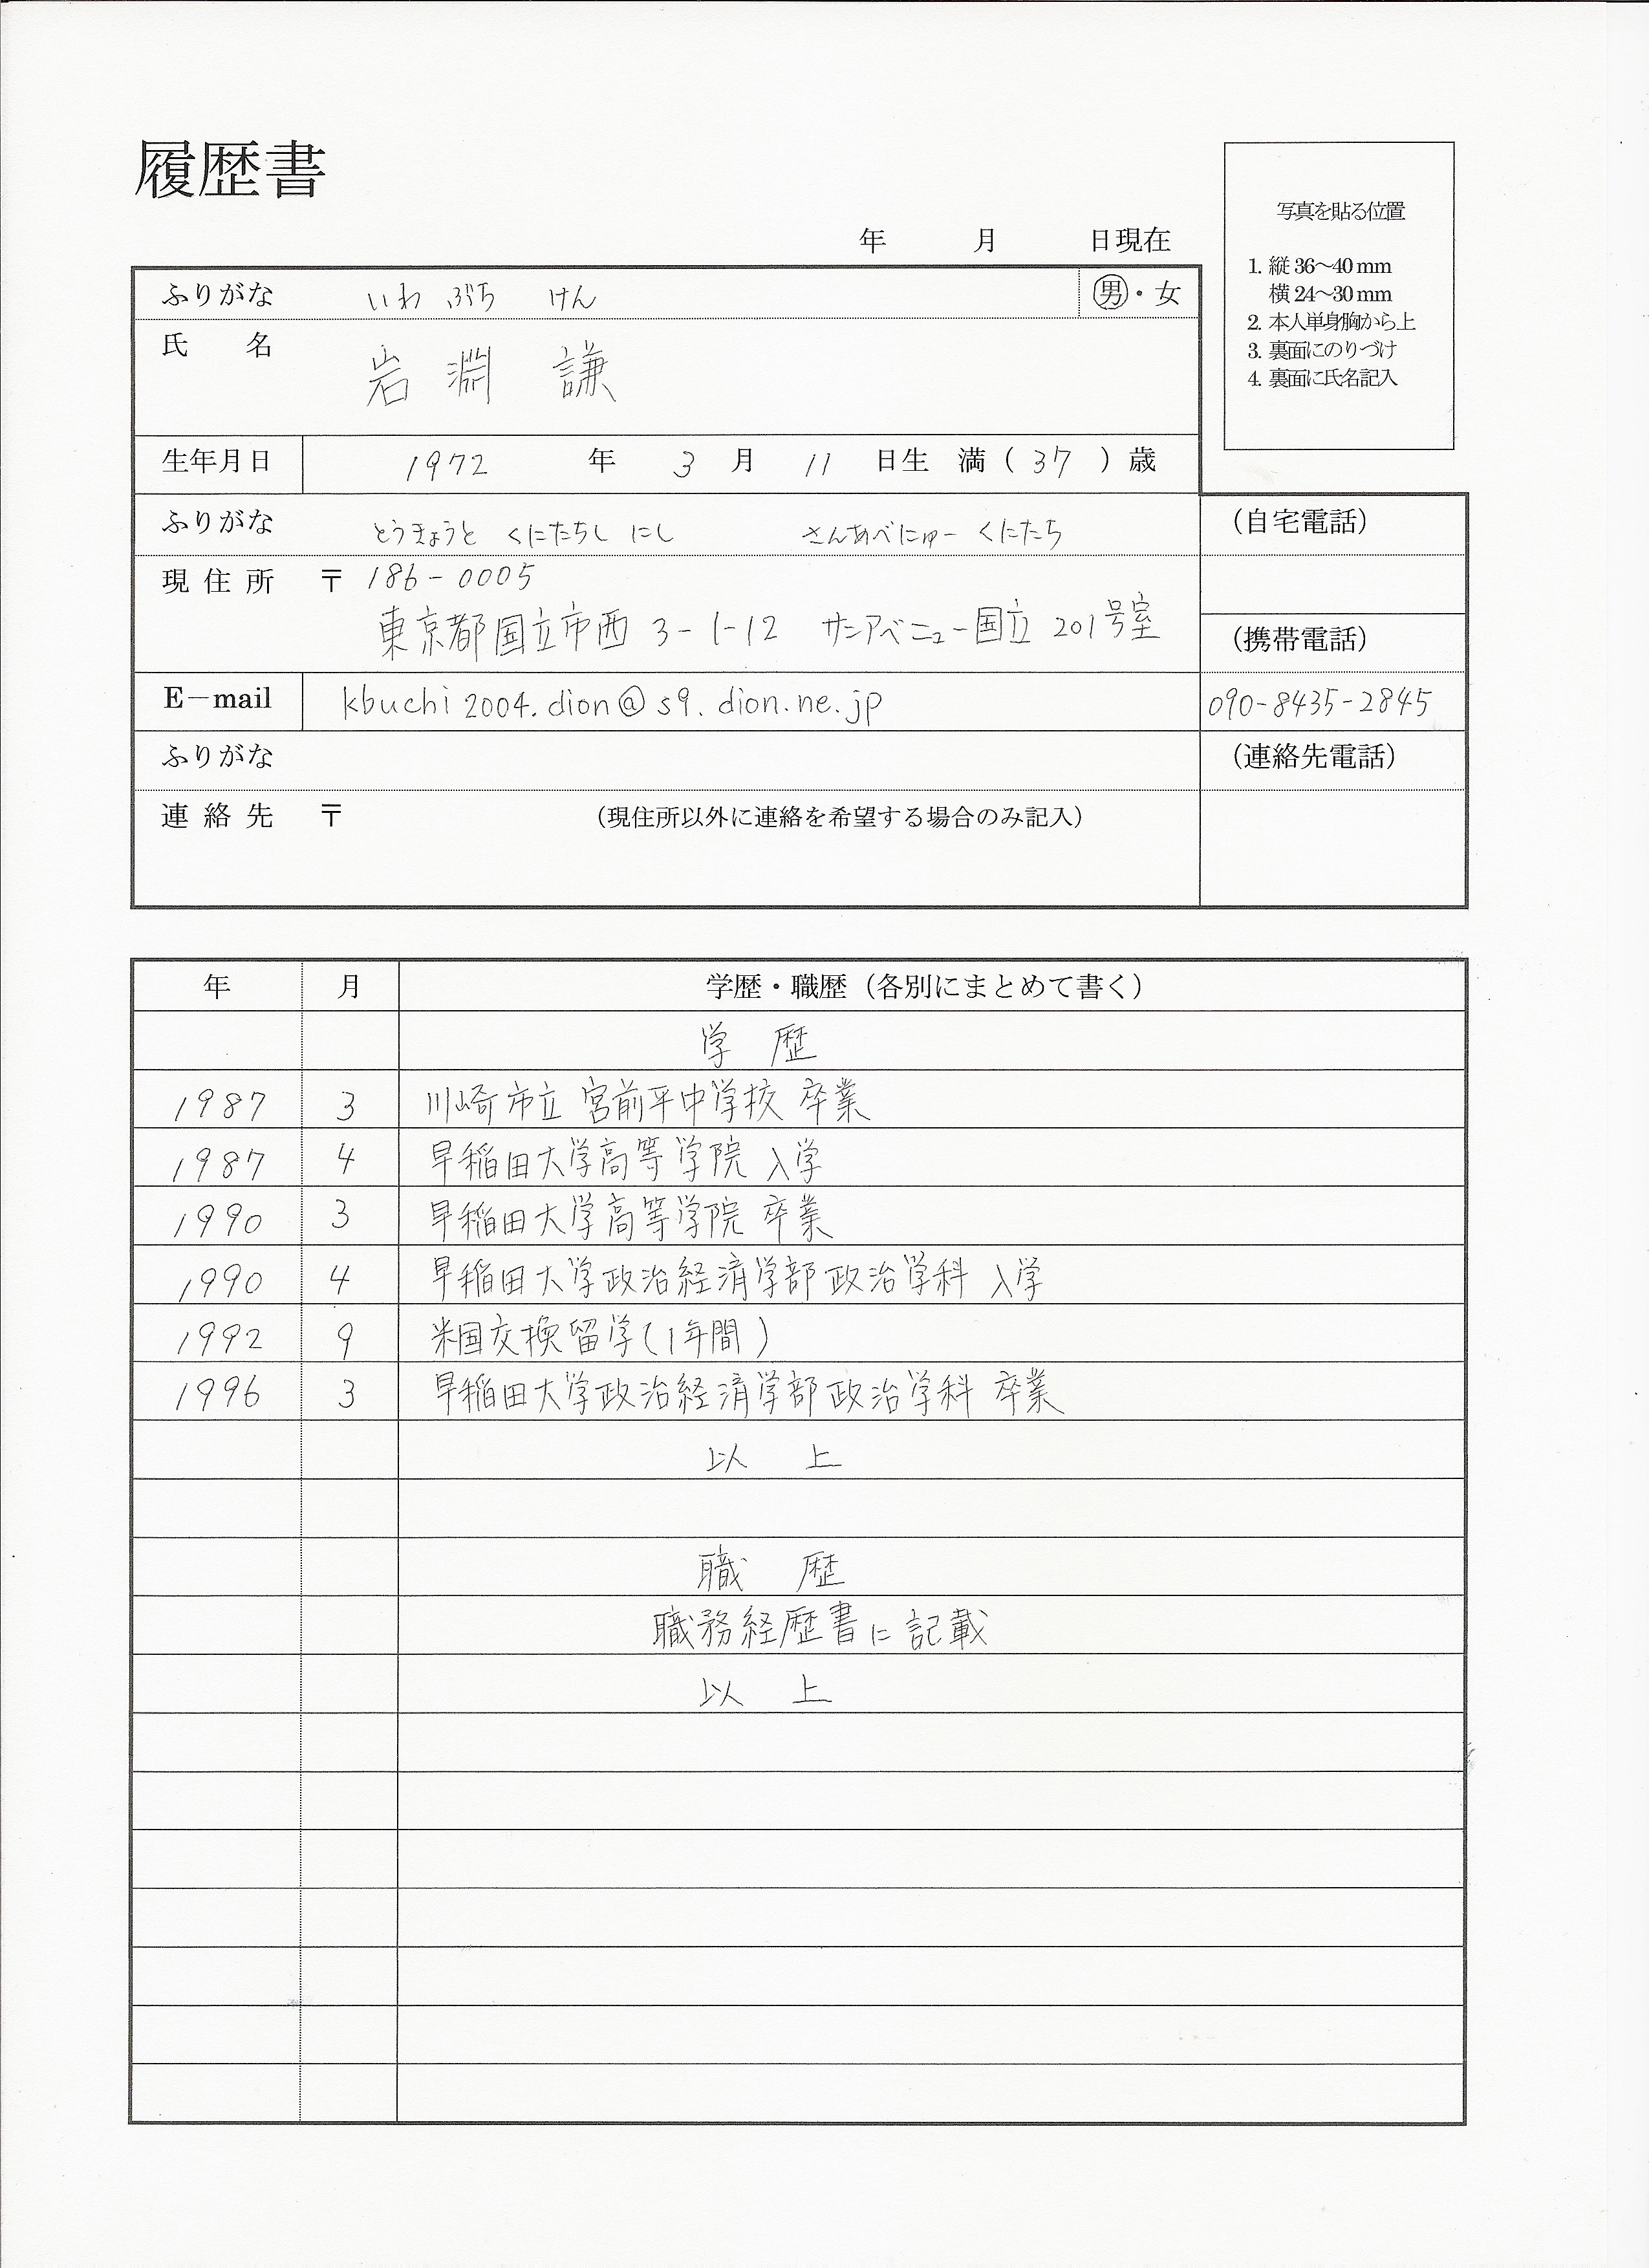 履歴書
年 月 日現在
写真を貼る位置
1. 縦 36〜40 mm
横 24〜30 mm
2. 本人単身胸から上
3. 裏面にのりづけ
4. 裏面に氏名記入
ふりがな いわ ぶち けん 男・女
氏 名 岩淵 謙
生年月日 1972 年 3 月 11 日生 満 ( 37 ) 歳
ふりがな とうきょうと くにたちし にし さんあべにゅー くにたち
(自宅電話)
現住所 〒 186-0005
東京都国立市西 3-1-12 サンアベニュー国立 201号室
(携帯電話)
E-mail kbuchi2004.dion@s9.dion.ne.jp
090-8435-2845
ふりがな
(連絡先電話)
連絡先 〒 (現住所以外に連絡を希望する場合のみ記入)
年 月 学歴・職歴 (各別にまとめて書く)
学 歴
1987 3 川崎市立 宮前平中学校 卒業
1987 4 早稲田大学高等学院 入学
1990 3 早稲田大学高等学院 卒業
1990 4 早稲田大学政治経済学部政治学科 入学
1992 9 米国交換留学(1年間)
1996 3 早稲田大学政治経済学部政治学科 卒業
以 上
職 歴
職務経歴書に記載
以 上